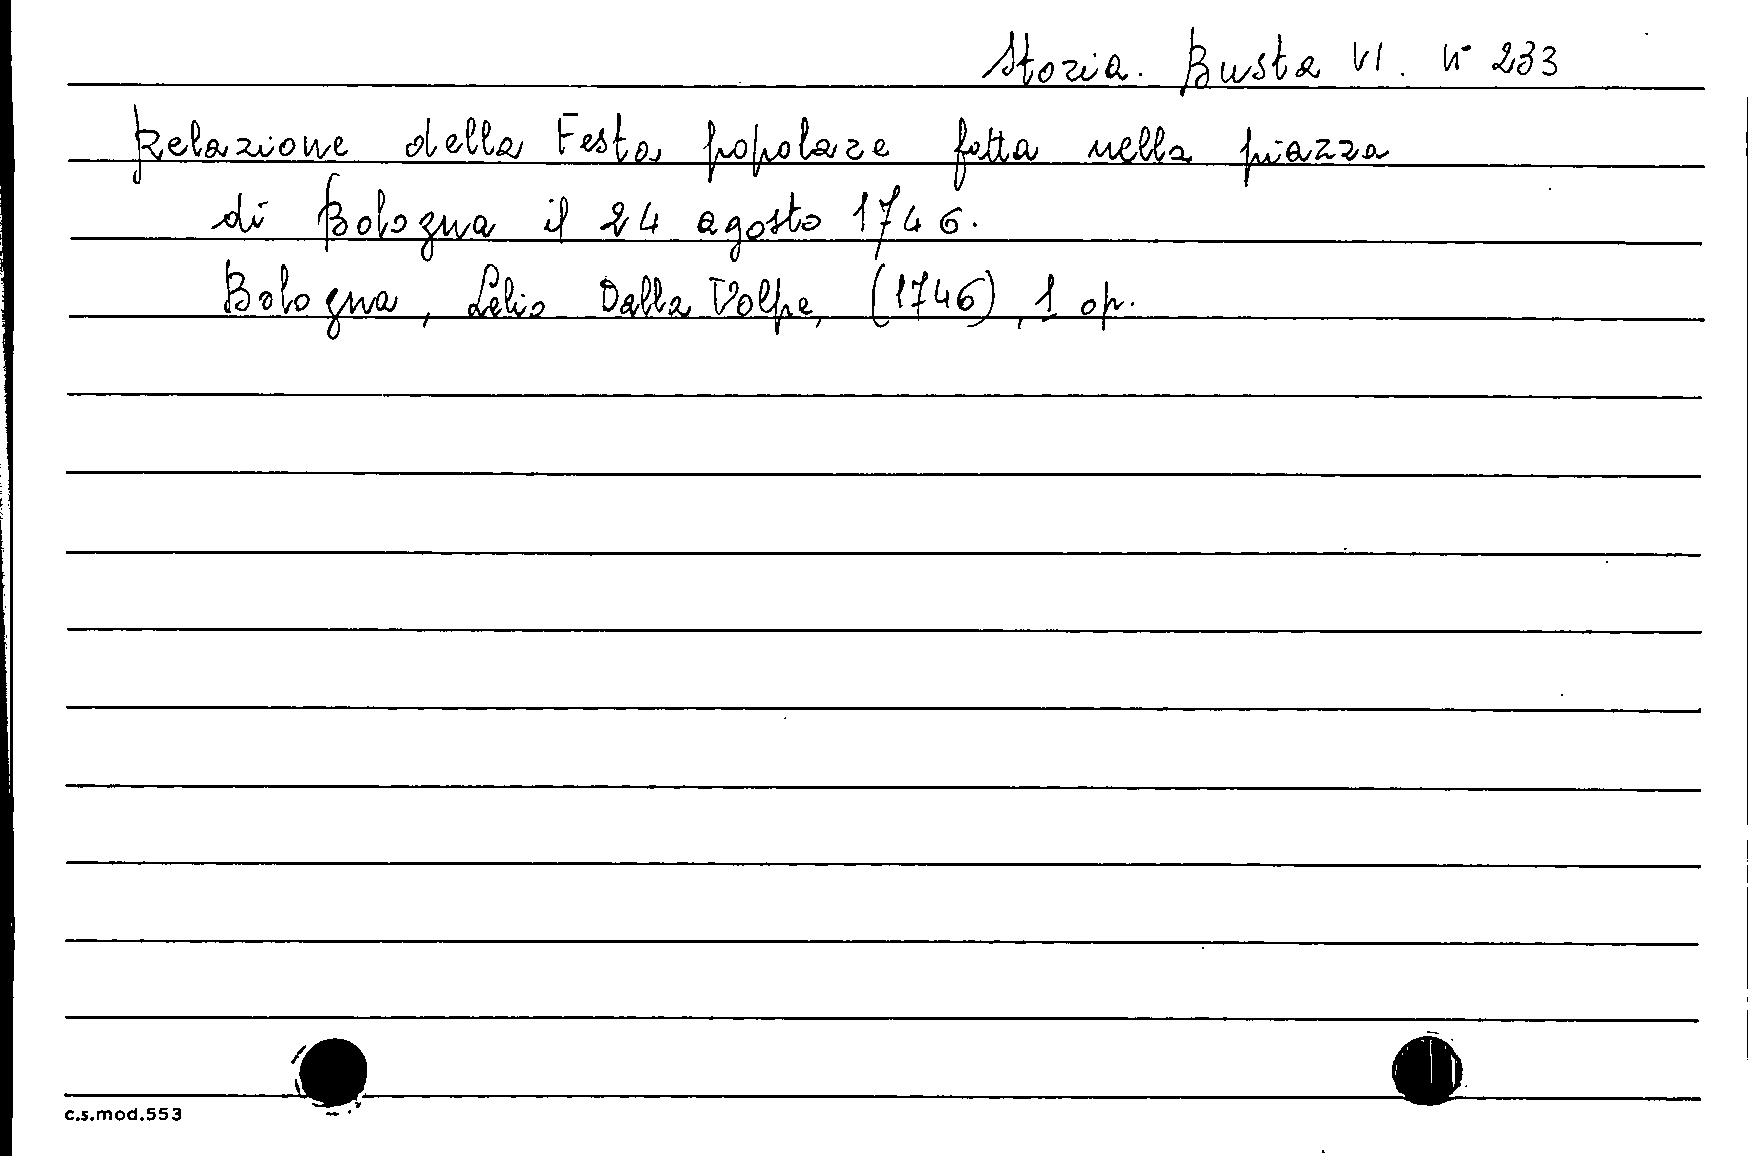 Storia. Busta VI. n° 233
Relazione della Festa popolare fatta nella piazza
di Bologna il 24 agosto 1746.
Bologna, Lelio Dalla Volpe, (1746), 1 op.
c.s.mod.553